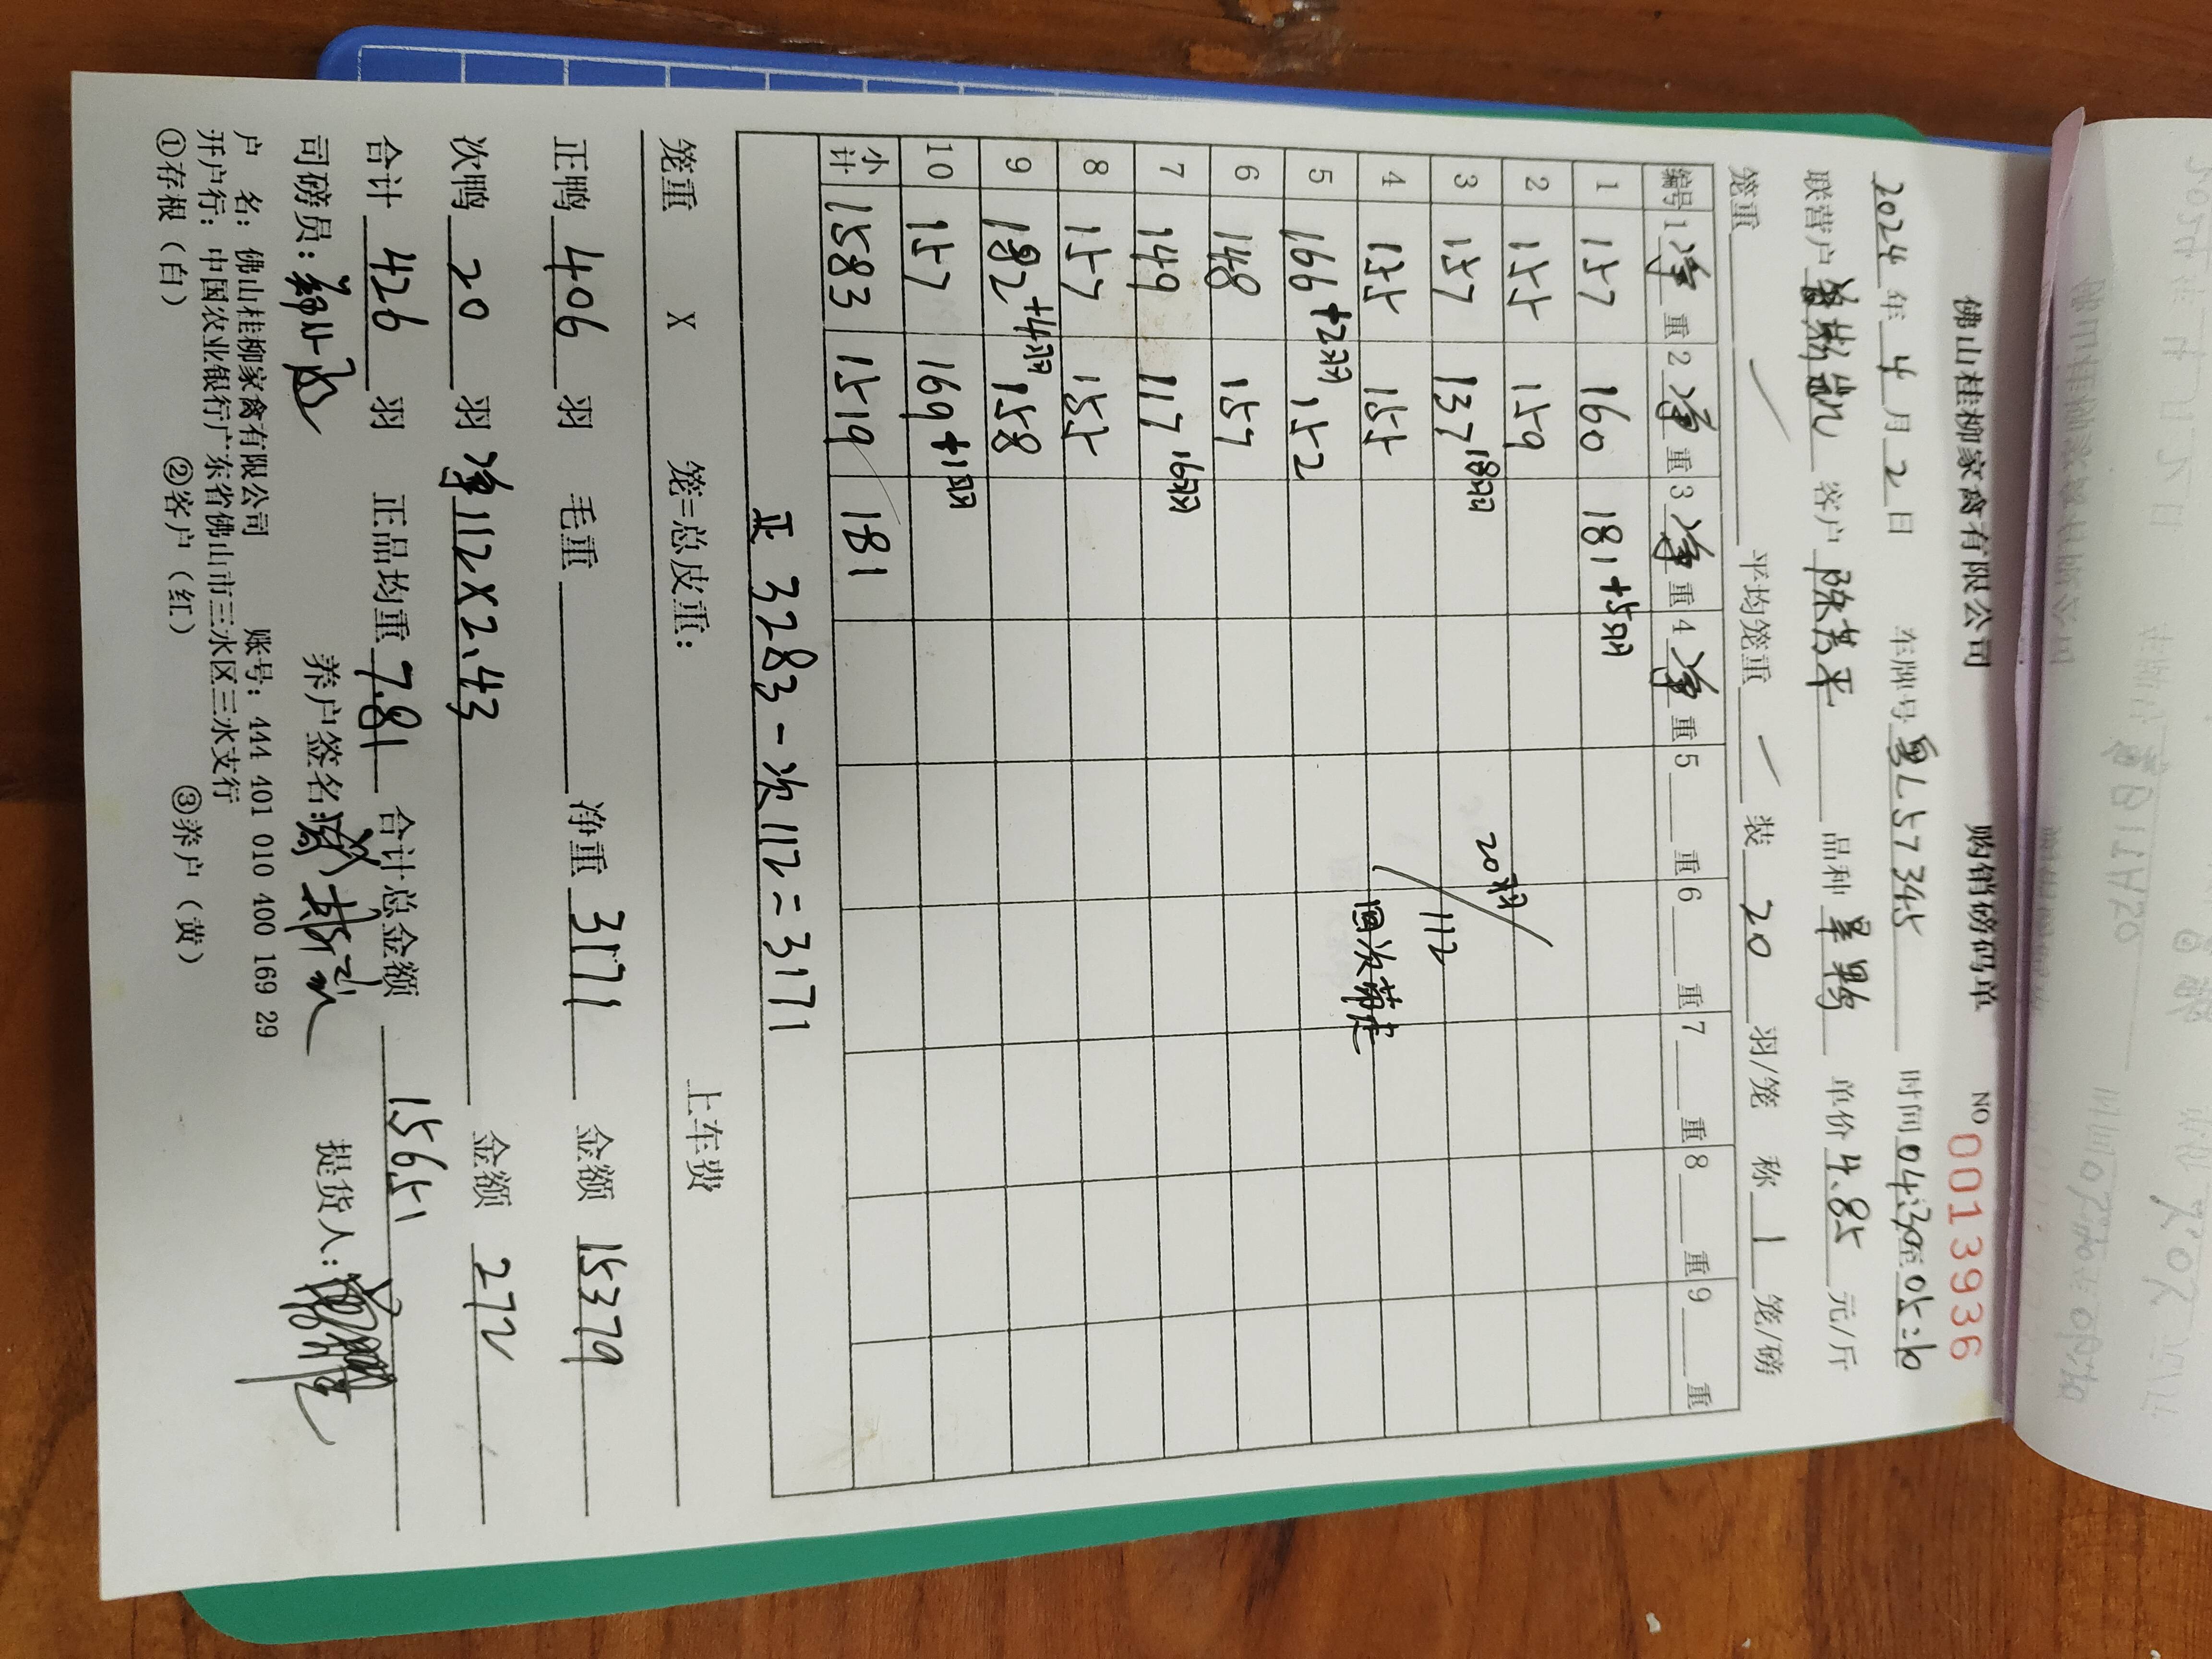 佛山桂柳家禽有限公司 购销磅码单 NO 0013936
2024年4月2日 车牌号 粤L57345 时间04:30至05:10
联营户 客户 陈芳平 品种 单价4.85元/斤
笼重 平均笼重 装20羽/笼 称1笼/磅
编号 1净重 2净重 3净重 4净重 5重 6重 7重 8重 9重
1 157 160 181+5羽
2 155 159
3 157 137 18羽 20羽
4 155 155 112
5 166+2羽 152 回次带走
6 148 157
7 149 117 16羽
8 157 155
9 182+4羽 158
10 157 169+1羽
小计 1583 1519 181
正 3283-次112=3171
笼重 X 笼=总皮重: 上车费
正鸭406羽 毛重 净重3171 金额15379
次鸭20羽 净112X2.43 金额272
合计426羽 正品均重7.81 合计总金额15651
司磅员: 养户签名: 提货人:
户 名: 佛山桂柳家禽有限公司 账号: 444 401 010 400 169 29
开户行: 中国农业银行广东省佛山市三水区三水支行
①存根(白) ②客户(红) ③养户(黄)